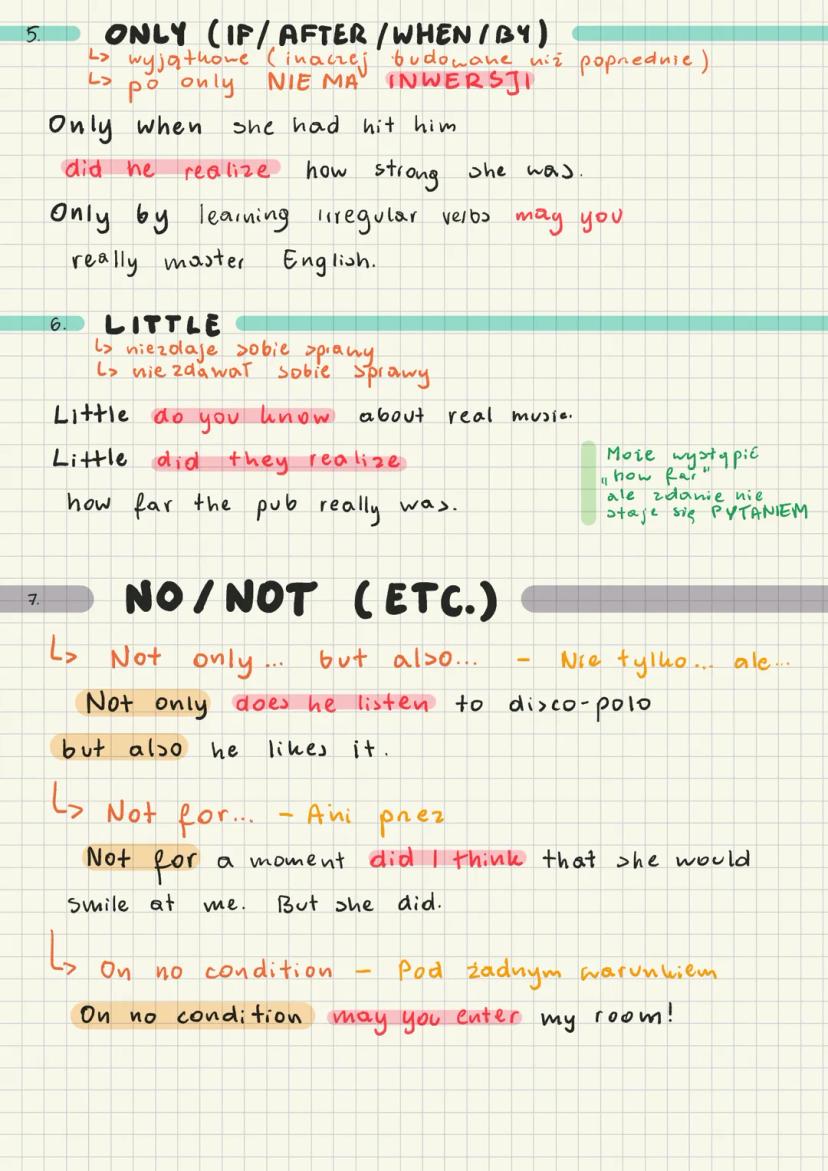 5. ONLY (IF/AFTER/WHEN/BY)
↳ wyjątkowe (inaczej budowane niż poprzednie)
↳ po only NIE MA INWERSJI
Only when she had hit him
did he realize how strong she was.
Only by learning irregular verbs may you
really master English.
6. LITTLE
↳ niezdaje sobie sprawy
↳ nie zdawał sobie sprawy
Little do you know about real music.
Little did they realize
how far the pub really was.
Może wystąpić
„how far"
ale zdanie nie
staje się PYTANIEM
7. NO/NOT (ETC.)
↳ Not only... but also... - Nie tylko... ale...
Not only does he listen to disco-polo
but also he likes it.
↳ Not for... - Ani przez
Not for a moment did I think that she would
smile at me. But she did.
↳ On no condition - Pod żadnym warunkiem
On no condition may you enter my room!